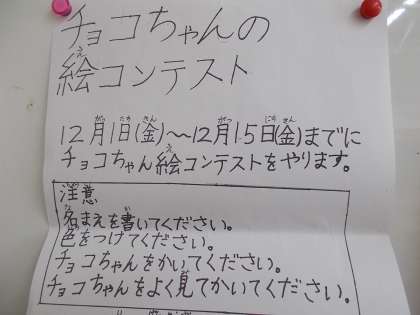 チョコちゃんの
絵コンテスト
12月1日(金)〜12月15日(金)までに
チョコちゃん絵コンテストをやります。
注意
名まえを書いてください。
色をつけてください。
チョコちゃんをかいてください。
チョコちゃんをよく見てかいてください。